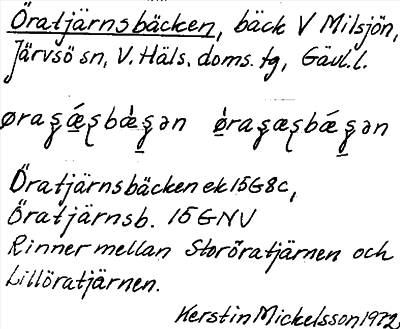 Öratjärnsbäcken, bäck V Milsjön,
Järvsö sn, V. Häls. doms. tg, Gävl. l.
Öratjärnsbäcken ek 15G8c,
Öratjärnsb. 15 GNV
Rinner mellan Storöratjärnen och
Lillöratjärnen.
Kerstin Mickelsson 1972.